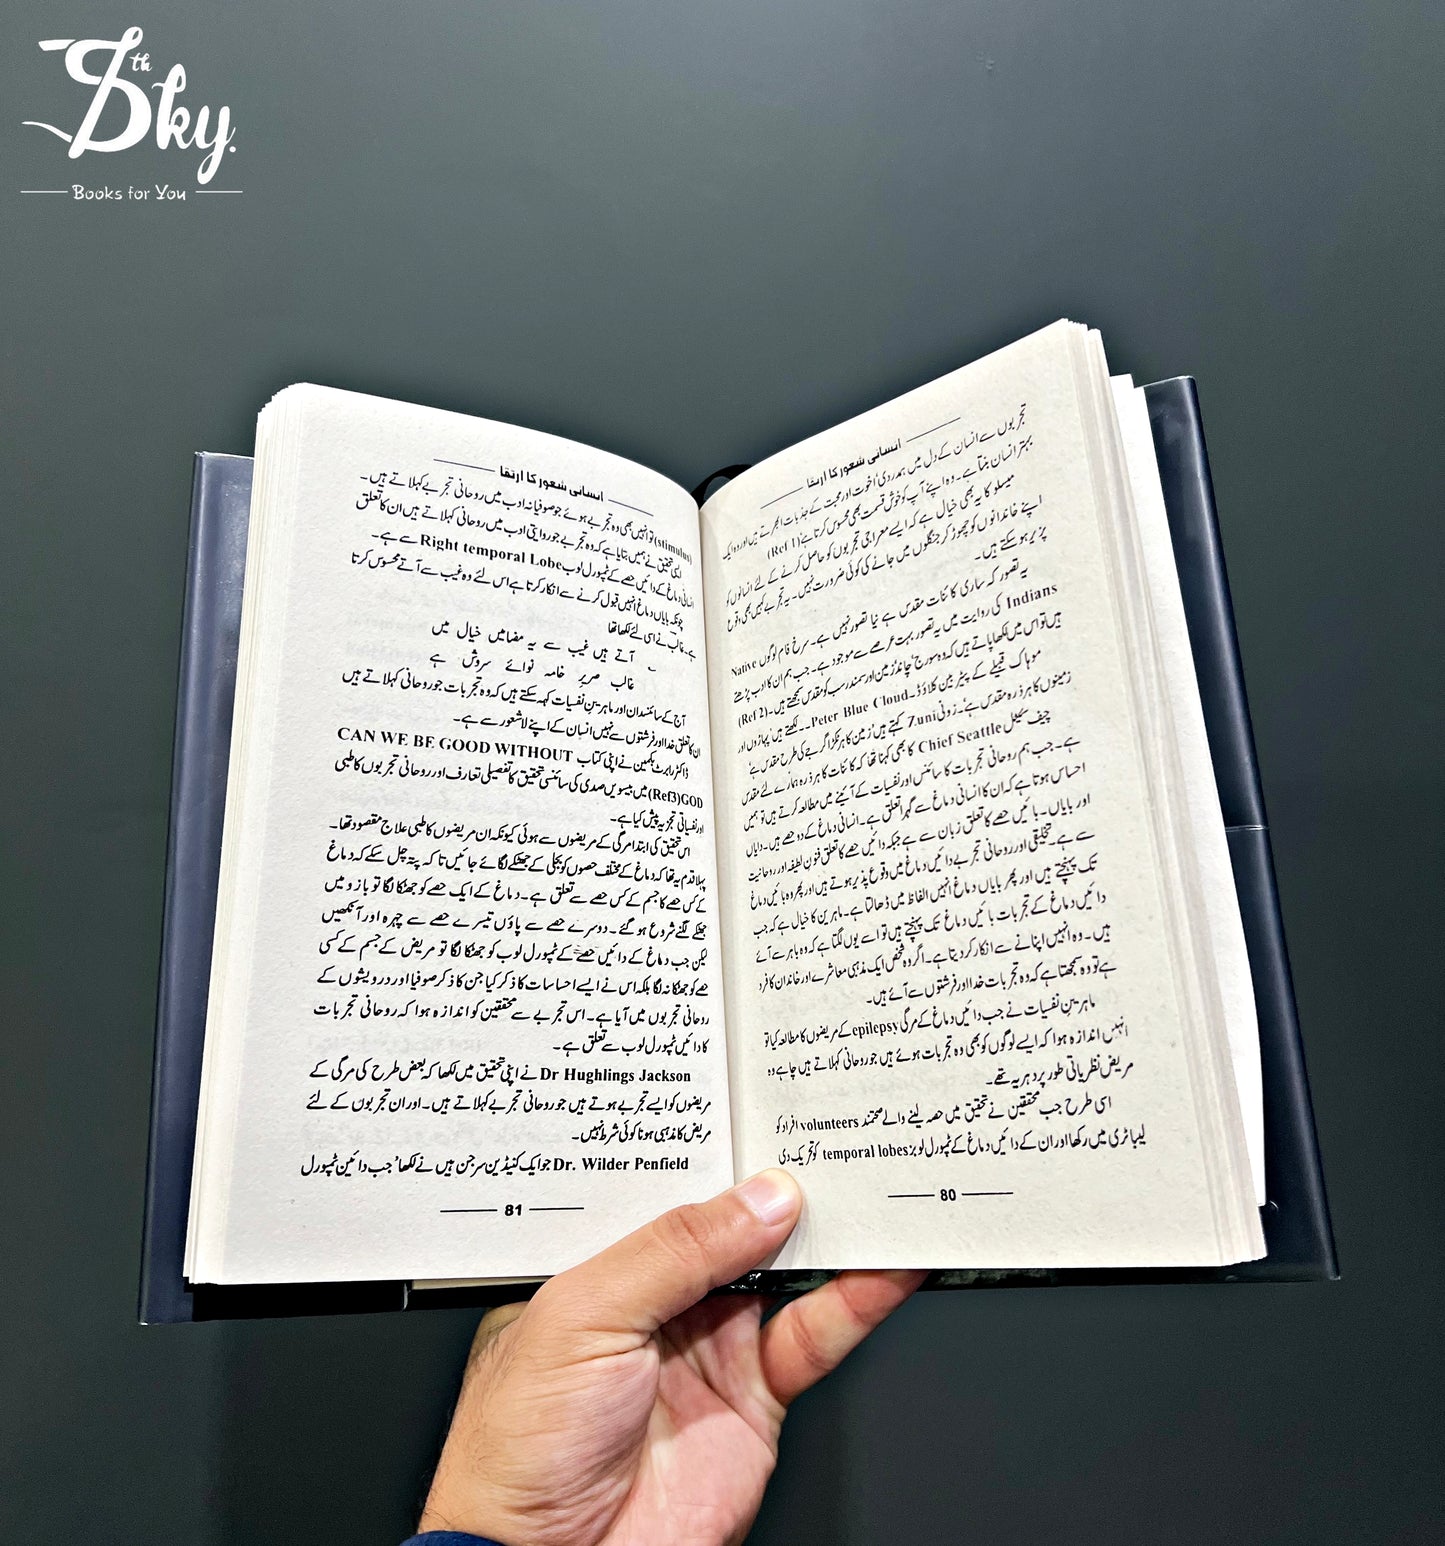 7th Sky.
Books for You
انسانی شعور کا ارتقا
تجربوں سے انسان کے دل میں ہمدردی، اخوت اور محبت کے جذبات ابھرتے ہیں اور وہ ایک
بہتر انسان بنتا ہے۔ وہ اپنے آپ کو خوش قسمت بھی محسوس کرتا ہے (Ref 1)
میسلو کا یہ بھی خیال ہے کہ ایسے معراجی تجربوں کو حاصل کرنے کے لئے انسانوں کو
اپنے خاندانوں کو چھوڑ کر جنگلوں میں جانے کی کوئی ضرورت نہیں۔ یہ تجربے کہیں بھی وقوع
پزیر ہو سکتے ہیں۔
یہ تصور کہ ساری کائنات مقدس ہے نیا تصور نہیں ہے۔ سرخ فام لوگوں Native
Indians کی روایت میں یہ تصور بہت عرصے سے موجود ہے۔ جب ہم ان کا ادب پڑھتے
ہیں تو اس میں لکھا پاتے ہیں کہ وہ سورج، چاند، زمین اور سمندر سب کو مقدس سمجھتے ہیں۔ (Ref 2)
موہاک قبیلے کے پیٹر بین کلاؤڈ۔Peter Blue Cloud۔۔لکھتے ہیں، پہاڑوں اور
زمینوں کا ہر ذرہ مقدس ہے،۔ زونی Zuni کہتے ہیں، زمین کا ہر ٹکڑا گرجے کی طرح مقدس ہے،
چیف سیٹل Chief Seattle کا بھی کہنا تھا کہ کائنات کا ہر ذرہ ہمارے لئے مقدس
ہے۔ جب ہم روحانی تجربات کا سائنس اور نفسیات کے آئینے میں مطالعہ کرتے ہیں تو ہمیں
احساس ہوتا ہے کہ ان کا انسانی دماغ سے گہرا تعلق ہے۔ انسانی دماغ کے دو حصے ہیں۔ دایاں
اور بایاں۔ بائیں حصے کا تعلق زبان سے ہے جبکہ دائیں حصے کا تعلق فنونِ لطیفہ اور روحانیت
سے ہے۔ تخلیقی اور روحانی تجربے دائیں دماغ میں وقوع پذیر ہوتے ہیں اور پھر وہ بائیں دماغ
تک پہنچتے ہیں اور پھر بایاں دماغ انہیں الفاظ میں ڈھالتا ہے۔ ماہرین کا خیال ہے کہ جب
دائیں دماغ کے تجربات بائیں دماغ تک پہنچتے ہیں تو اسے یوں لگتا ہے کہ وہ باہر سے آئے
ہیں۔ وہ انہیں اپنانے سے انکار کر دیتا ہے۔ اگر وہ شخص ایک مذہبی معاشرے اور خاندان کا فرد
ہے تو وہ سمجھتا ہے کہ وہ تجربات خدا اور فرشتوں سے آئے ہیں۔
ماہرین نفسیات نے جب دائیں دماغ کے مرگی epilepsy کے مریضوں کا مطالعہ کیا تو
انہیں اندازہ ہوا کہ ایسے لوگوں کو بھی وہ تجربات ہوئے ہیں جو روحانی کہلاتے ہیں چاہے وہ
مریض نظریاتی طور پر دہریہ تھے۔
اسی طرح جب محققین نے تحقیق میں حصہ لینے والے صحتمند volunteers افراد کو
لیباٹری میں رکھا اور ان کے دائیں دماغ کے ٹمپورل لوبز temporal lobes کو تحریک دی
80
انسانی شعور کا ارتقا
(stimulus) تو انہیں بھی وہ تجربے ہوئے جو صوفیانہ ادب میں روحانی تجربے کہلاتے ہیں۔
ایسی تحقیق نے ہمیں بتایا ہے کہ وہ تجربے جو روایتی ادب میں روحانی کہلاتے ہیں ان کا تعلق
انسانی دماغ کے دائیں حصے کے ٹمپورل لوب Right temporal Lobe سے ہے۔
چونکہ بایاں دماغ انہیں قبول کرنے سے انکار کرتا ہے اس لئے وہ غیب سے آتے محسوس کرتا
ہے۔ غالب نے اسی لئے لکھا تھا
آتے ہیں غیب سے یہ مضامیں خیال میں
غالب صریرِ خامہ نوائے سروش ہے
آج کے سائنسدان اور ماہرینِ نفسیات کہہ سکتے ہیں کہ وہ تجربات جو روحانی کہلاتے ہیں
ان کا تعلق خدا اور فرشتوں سے نہیں انسان کے اپنے لاشعور سے ہے۔
ڈاکٹر رابرٹ بکمین نے اپنی کتاب CAN WE BE GOOD WITHOUT
GOD(Ref3) میں بیسویں صدی کی سائنسی تحقیق کا تفصیلی تعارف اور روحانی تجربوں کا طبی
اور نفسیاتی تجزیہ پیش کیا ہے۔
اس تحقیق کی ابتدا مرگی کے مریضوں سے ہوئی کیونکہ ان مریضوں کا طبی علاج مقصود تھا۔
پہلا قدم یہ تھا کہ دماغ کے مختلف حصوں کو بجلی کے جھٹکے لگائے جائیں تا کہ پتہ چل سکے کہ دماغ
کے کس حصے کا جسم کے کس حصے سے تعلق ہے۔ دماغ کے ایک حصے کو جھٹکا لگا تو بازو میں
جھٹکے لگنے شروع ہو گئے۔ دوسرے حصے سے پاؤں تیسرے حصے سے چہرہ اور آنکھیں
لیکن جب دماغ کے دائیں حصے کے ٹمپورل لوب کو جھٹکا لگا تو مریض کے جسم کے کسی
حصے کو جھٹکا نہ لگا بلکہ اس نے ایسے احساسات کا ذکر کیا جن کا ذکر صوفیا اور درویشوں کے
روحانی تجربوں میں آیا ہے۔ اس تجربے سے محققین کو اندازہ ہوا کہ روحانی تجربات
کا دائیں ٹمپورل لوب سے تعلق ہے۔
Dr Hughlings Jackson نے اپنی تحقیق میں لکھا کہ بعض طرح کی مرگی کے
مریضوں کو ایسے تجربے ہوتے ہیں جو روحانی تجربے کہلاتے ہیں۔ اور ان تجربوں کے لئے
مریض کا مذہبی ہونا کوئی شرط نہیں۔
Dr. Wilder Penfield جو ایک کنیڈین سرجن ہیں نے لکھا، جب دائین ٹمپورل
81